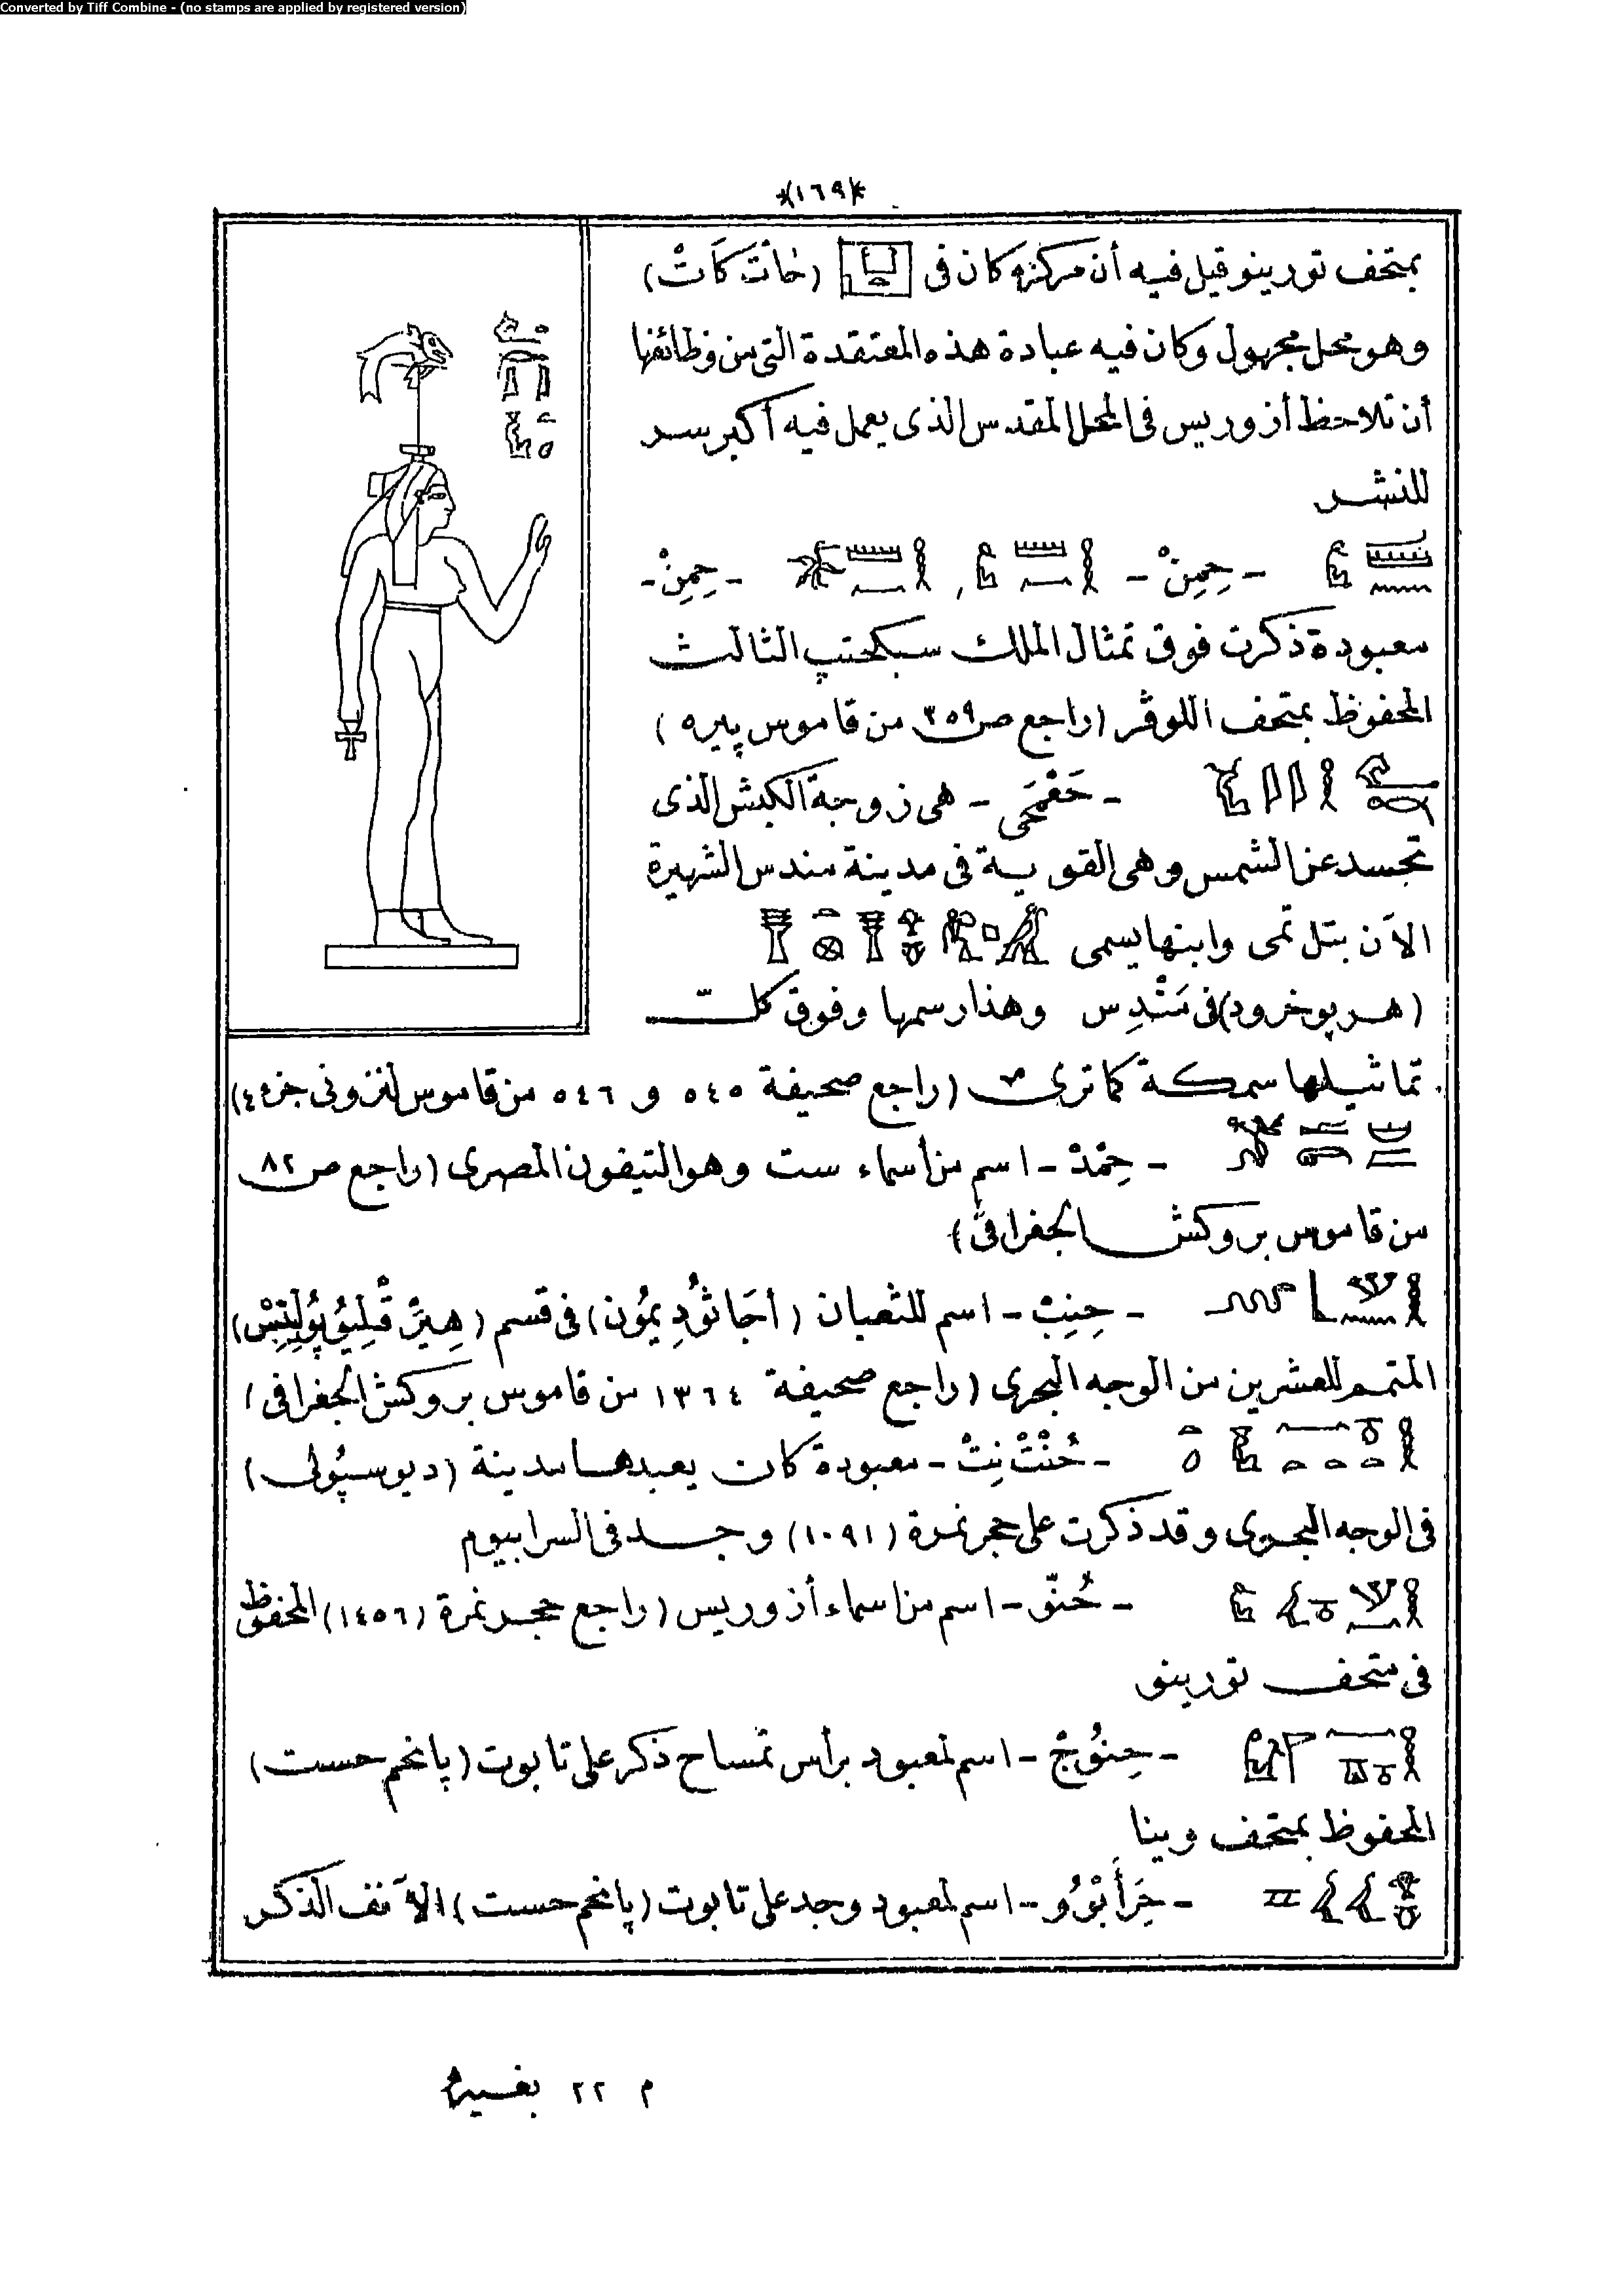 Converted by Tiff Combine - (no stamps are applied by registered version)
*(١٦٩)*
بمتحف تورينو قيل فيه أن مركزه كان فى (حَاتْ كَاتْ)
وهو محل مجهول وكان فيه عبادة هذه المعتقدة التى من وظائفها
أن تلاحظ أزوريس فى المحل المقدس الذى يعمل فيه أكبر سر
للنشر
- حِمِنْ - , - حِمِنْ -
معبودة ذكرت فوق تمثال الملك سبكحتب الثالث
المحفوظ بمتحف اللوڤر (راجع ص ٣٥٩ من قاموس پيره)
- حَعْمَحى - هى زوجة الكبش الذى
تجسد عن الشمس وهى القوية فى مدينة مندس الشهيرة
الآن بتل تمى وابنها يسمى
(هرپوخرود) فى مَنْدِس وهذا رسمها وفوق كل
تماثيلها سمكة كما ترى (راجع صحيفة ٥٤٥ و ٥٤٦ من قاموس لنزونى جزء ٤)
- حِمْدْ - اسم من أسماء ست وهو التيفون المصرى (راجع ص ٨٢
من قاموس بروكش الجغرافى)
- حِنِبْ - اسم للثعبان (أجَاثُودِيمُون) فى قسم
المتمم للعشرين من الوجه البحرى (راجع صحيفة ١٣٦٤ من قاموس بروكش الجغرافى)
- حُنْتْ نِتْ - معبودة كان يعبدها مدينة (ديوسپُولى)
فى الوجه البحرى وقد ذكرت على حجر نمرة (١٠٩١) وجد فى السرابيوم
- حُنّو - اسم من اسماء أزوريس (راجع حجر نمرة (١٤٥٦) المحفوظ
فى متحف تورينو
- حِنُوجْ - اسم لمعبود برأس تمساح ذكر على تابوت (پانخم حست)
المحفوظ بمتحف وينا
- اسم لمعبود وجد على تابوت (پانخم حست) الآنف الذكر
م ٢٢